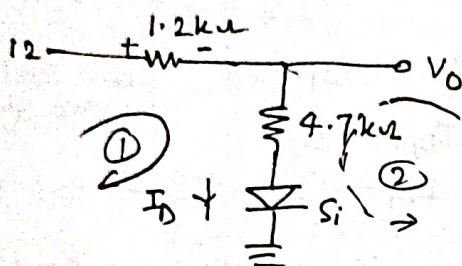 1.2kΩ
12 + -
V₀
4.7kΩ
①
②
I_D
Si